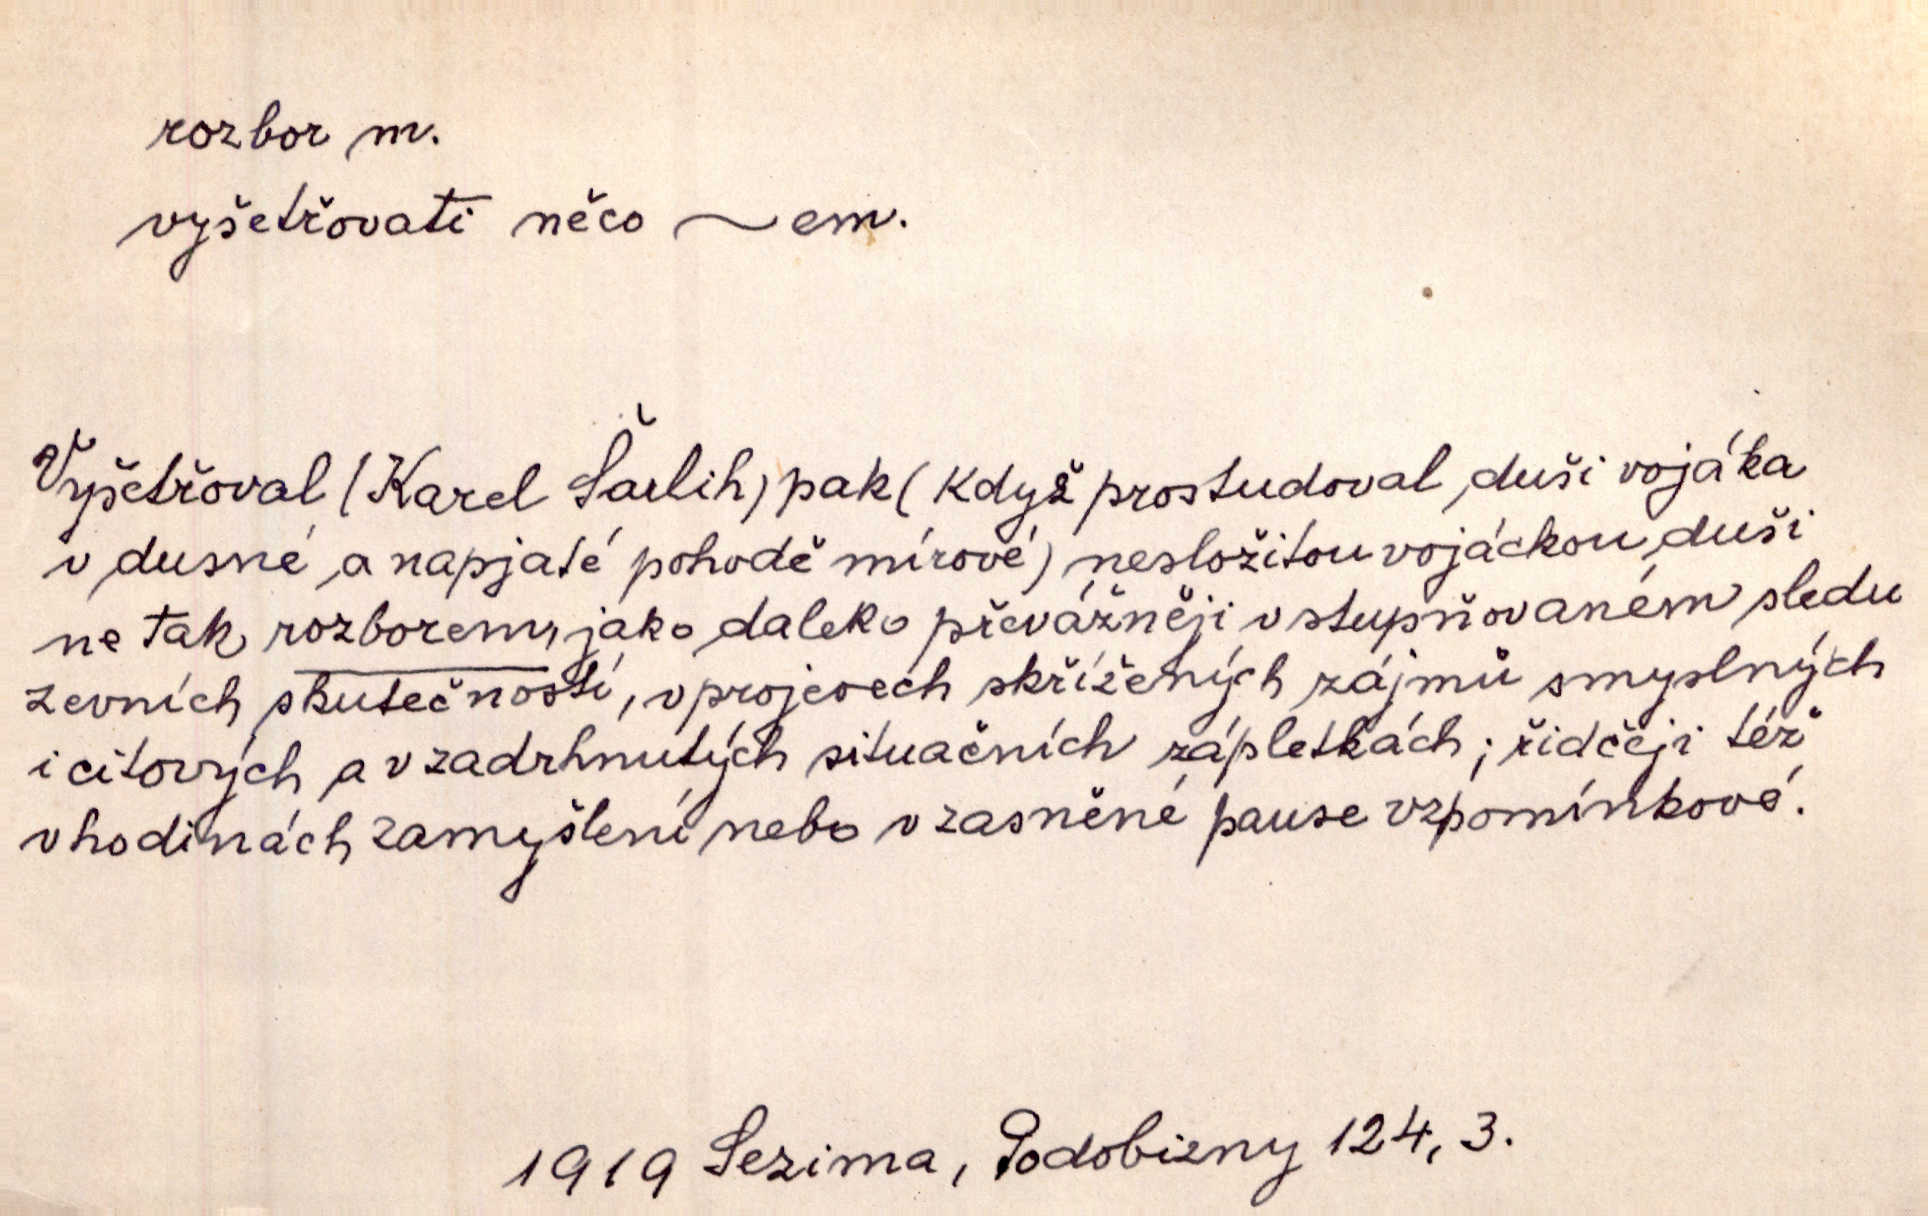 rozbor m.
vyšetřovati něco ~em.
Vyšetřoval (Karel Šarlih) pak (když prostudoval duši vojáka
v dusné a napjaté pohodě mírové) nesložitou vojáckou duši
ne tak rozborem, jako daleko převážněji v stupňovaném sledu
zevních skutečností, v projevech skřížených zájmů smyslných
i citových a v zadrhnutých situačních zápletkách; řidčeji též
v hodinách zamyšlení nebo v zasněné pause vzpomínkové.
1919 Sezima, Podobizny 124, 3.